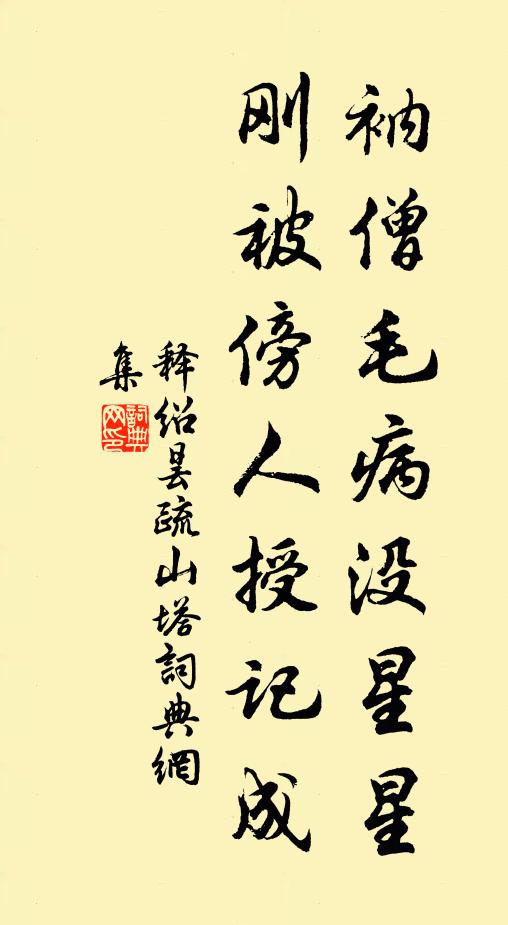 衲僧毛病没星星
刚被傍人授记成
释绍昙疏山塔詞典網
集
詞典网印